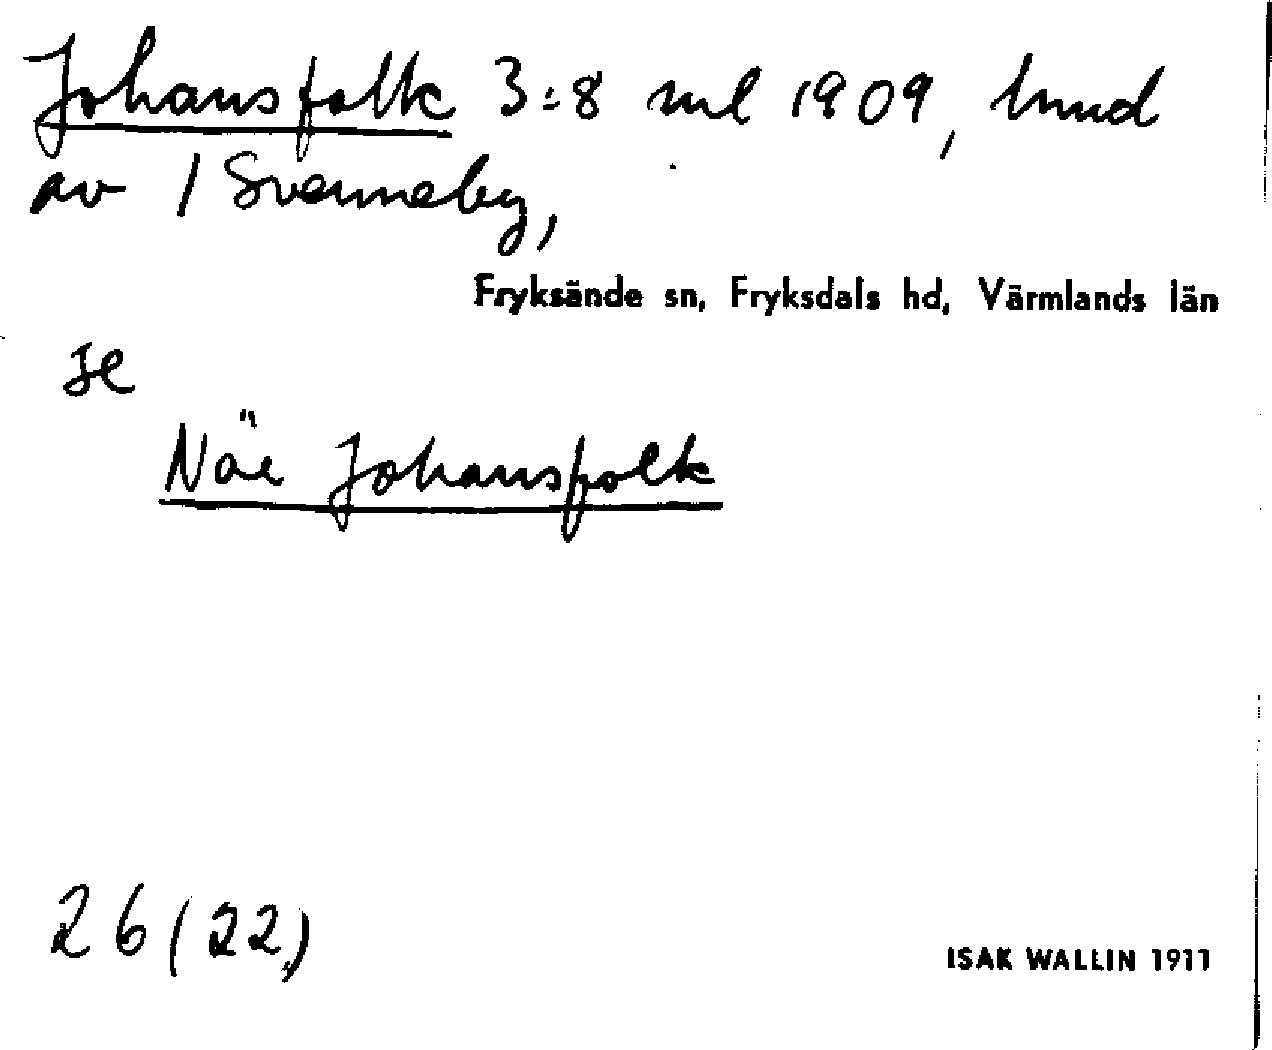 Johansfolk 3:8 enl 1909, hmd
av 1 Svenneby,
Fryksände sn, Fryksdals hd, Värmlands län
se
Näe Johansfolk
26 (22)
ISAK WALLIN 1911